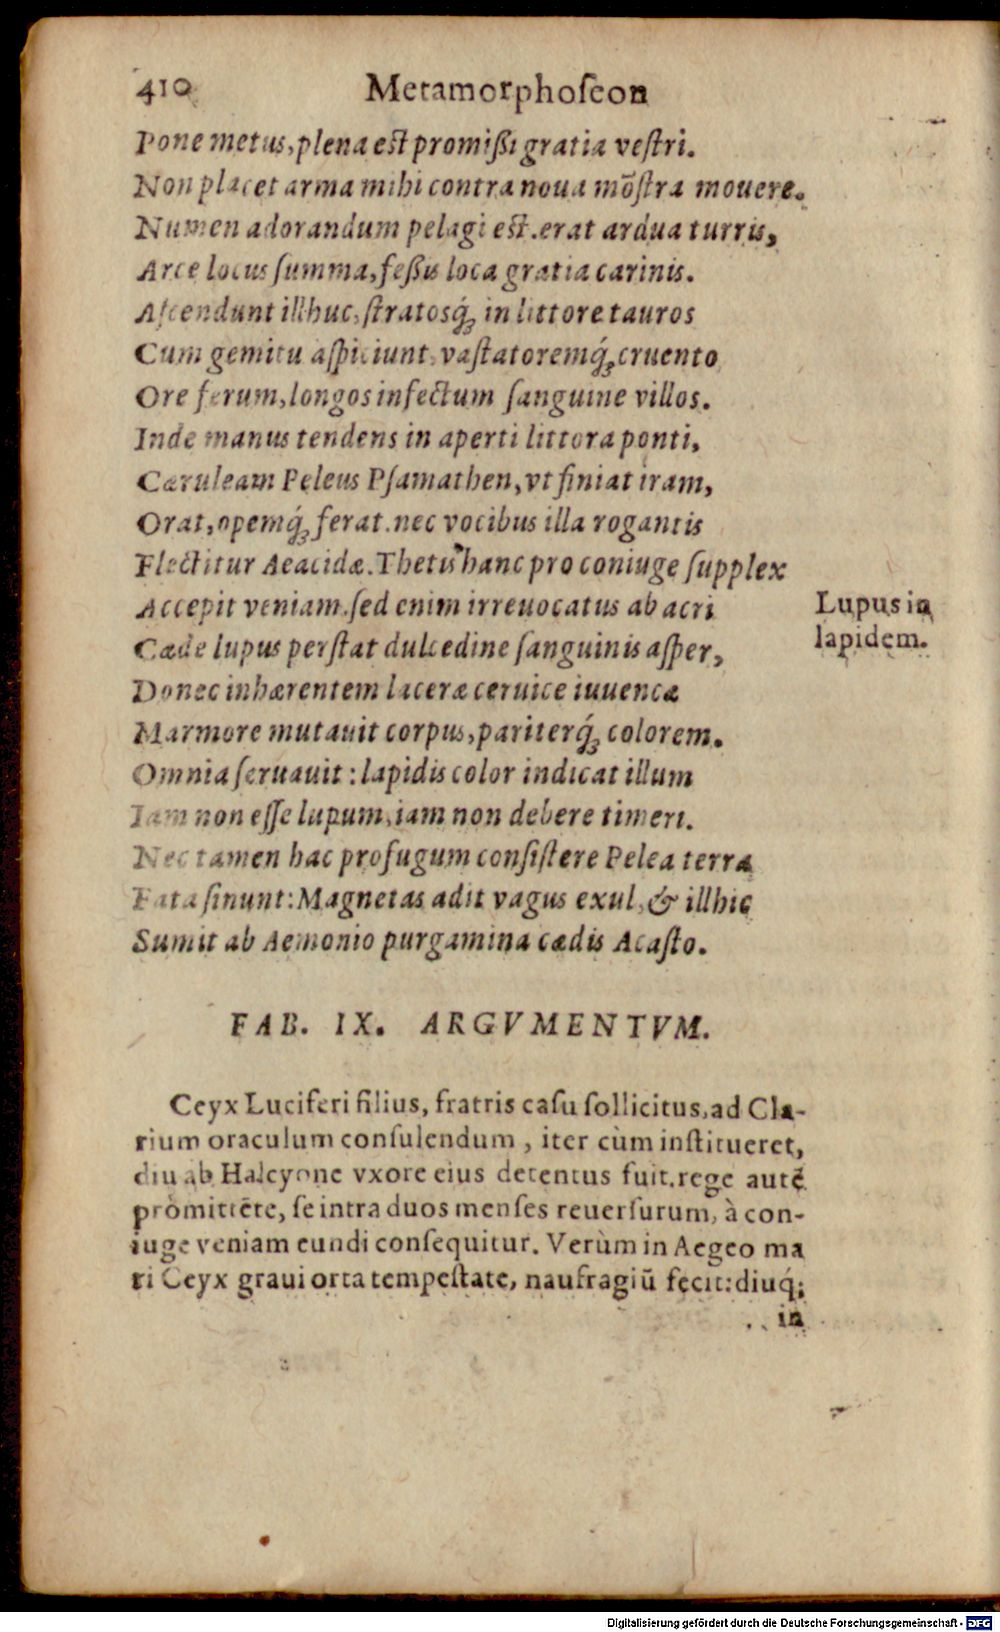 410 Metamorphoſeon
Pone metus, plena est promißi gratia veſtri.
Non placet arma mihi contra noua mōſtra mouere.
Numen adorandum pelagi est. erat ardua turris,
Arce locus ſumma, feßis loca gratia carinis.
Aſcendunt illhuc, ſtratosq́; in littore tauros
Cum gemitu aſpiciunt, vaſtatoremq́; cruento
Ore ferum, longos infectum ſanguine villos.
Inde manus tendens in aperti littora ponti,
Cæruleam Peleus Pſamathen, vt finiat iram,
Orat, opemq́; ferat. nec vocibus illa rogantis
Flectitur Aeacidæ. Thetis hanc pro coniuge ſupplex
Accepit veniam. ſed enim irreuocatus ab acri
Cæde lupus perſtat dulcedine ſanguinis aſper,
Lupus in
lapidem.
Donec inhærentem laceræ ceruice iuuencæ
Marmore mutauit corpus, pariterq́; colorem.
Omnia ſeruauit: lapidis color indicat illum
Iam non eſſe lupum, iam non debere timeri.
Nec tamen hac profugum conſiſtere Pelea terra
Fata ſinunt: Magnetas adit vagus exul, & illhic
Sumit ab Aemonio purgamina cædis Acaſto.
FAB. IX. ARGVMENTVM.
Ceyx Luciferi filius, fratris caſu ſollicitus, ad Cla-
rium oraculum conſulendum, iter cùm inſtitueret,
diu ab Halcyone vxore eius detentus fuit. rege autē
promittēte, ſe intra duos menſes reuerſurum, à con-
iuge veniam eundi conſequitur. Verùm in Aegeo ma
ri Ceyx graui orta tempeſtate, naufragiū fecit: diuq́;
in
Digitalisierung gefördert durch die Deutsche Forschungsgemeinschaft - DFG